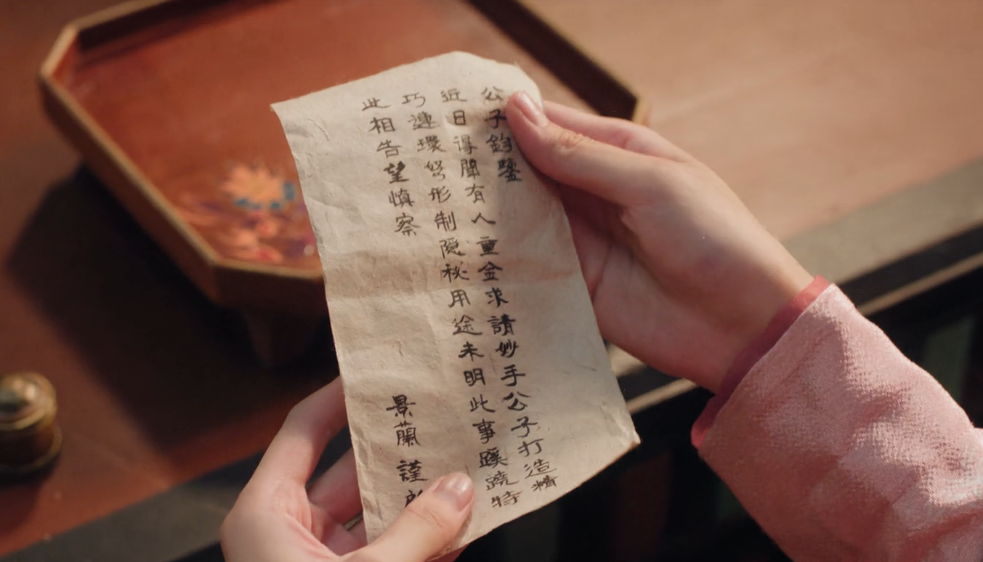 公子鈞鑒
近日得聞有人重金求請妙手公子打造精
巧連環弩形制隐秘用途未明此事蹊蹺特
此相告望慎察
景蘭謹